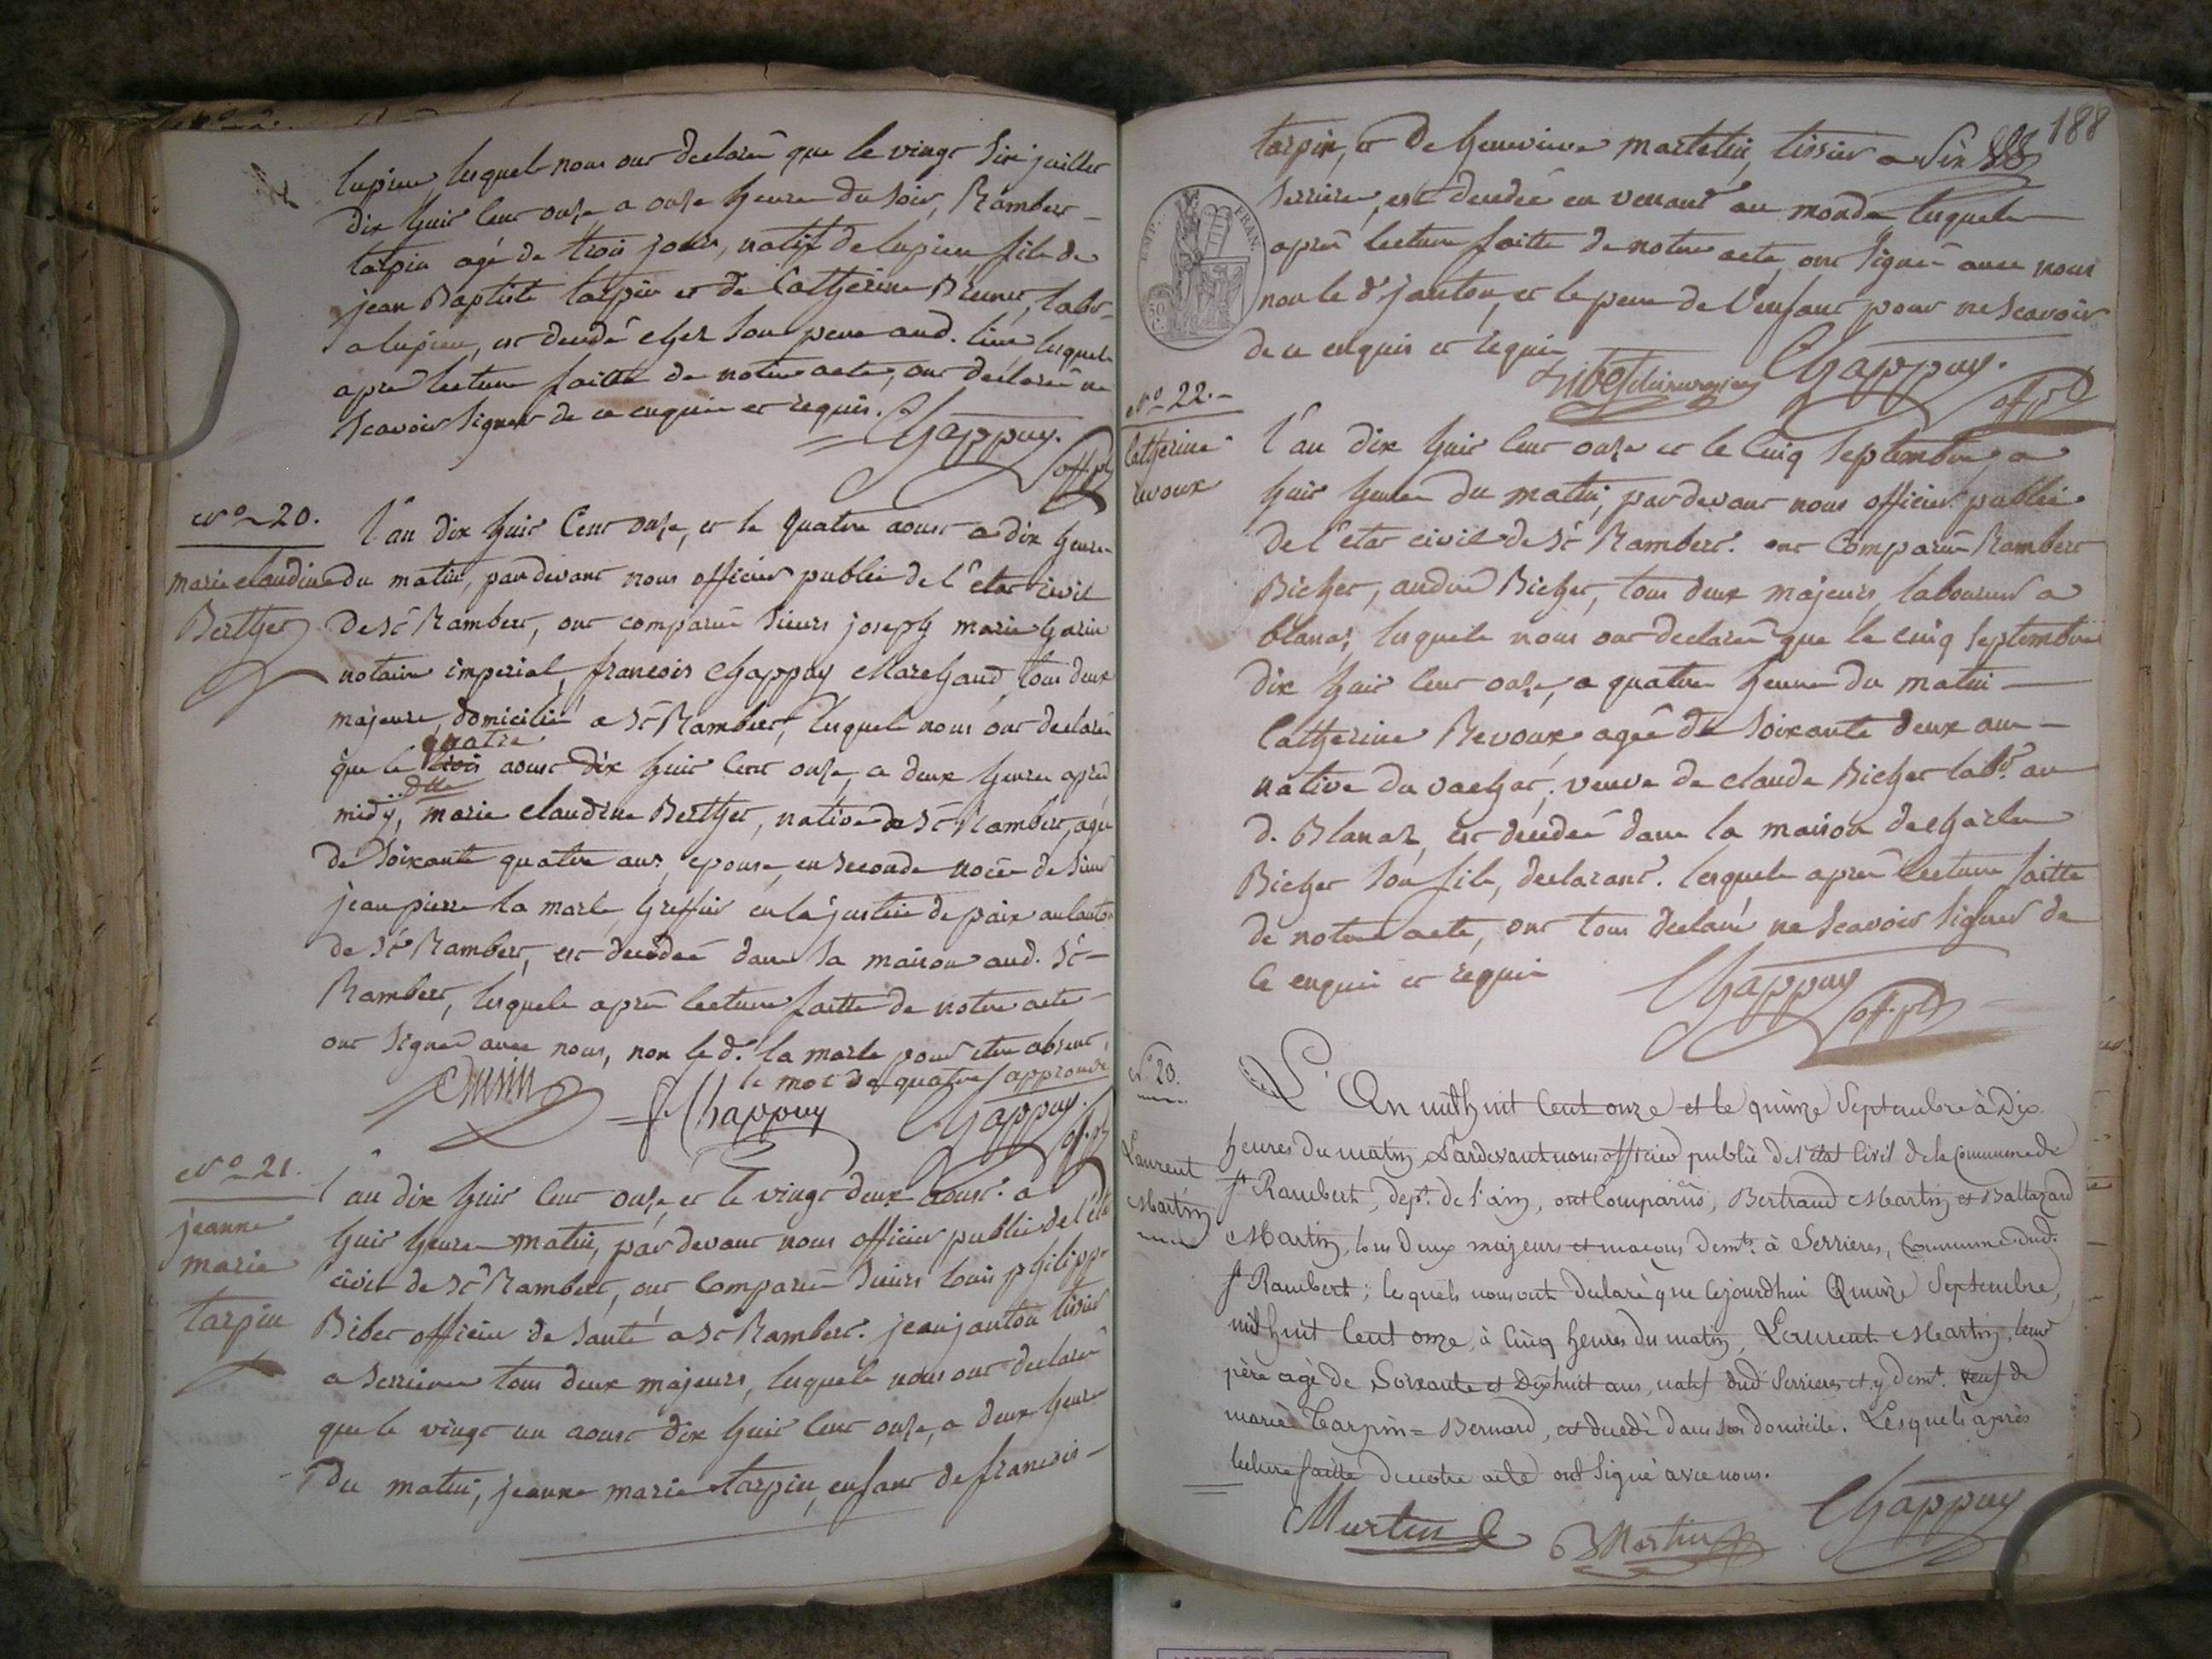 lupieu, lesquels nous ont declaré que le vingt six juillet
dix huit cent onze a onze heures du soir, Rambert
tarpin agé de trois jours, natif de lupieu fils de
jean Baptiste tarpin et de Catherine Brunet, labr
a lupieu, est decedé chez son pere aud. lieu lesquels
apres lecture faitte de notre acte, ont declaré ne
scavoir signer de ce enquis et requis. Chappuy.
off. pb
No 20.
marie claudine
Berthet
l'an dix huit cent onze, et le quatre aoust a dix heures
du matin, pardevant nous officier public de l'état civil
de St Rambert, ont comparu sieurs joseph marie
notaire imperial, francois Chappuy Marchand, tous deux
majeurs, domicilié a St Rambert, lesquels nous ont declaré
quatre
que le trois aoust dix huit cent onze, a deux heures apres
dtte
midy, marie claudine Berthet, native de St Rambert, agée
de soixante quatre ans, epouse en seconde noces de sieur
jean pierre la marle greffier en la justice de paix au canton
de St Rambert, est decedée dans sa maison aud. St
Rambert, lesquels apres lecture faitte de notre acte
ont signé avec nous, non le d. la marle pour etre absent,
le mot de quatre approuvé
f. Chappuy Chappuy.
off. pb
No 21.
jeanne
marie
tarpin
l'an dix huit cent onze et le vingt deux aoust a
huit heures matin, par devant nous officier public de l'état
civil de St Rambert, ont comparu sieurs louis philippe
Bibet officier de santé a St Rambert. jean janton tissier
a serrieres tous deux majeurs, lesquels nous ont declaré
que le vingt un aoust dix huit cent onze, a deux heures
du matin, jeanne marie tarpin, enfant de francois
188
tarpin, et de genevieve martelin, tissier a
EMP. FRAN.
serrieres, est decedée en venant au monde lesquels
apres lecture faitte de notre acte, ont signé avec nous
non le d janton, et le pere de l'enfant pour ne scavoir
de ce enquis et requis
Bibet chirurgien Chappuy.
off pb
No 22.
Catherine
revoux
l'an dix huit cent onze et le cinq septembre, a
huit heures du matin, pardevant nous officier public
de l'état civil de St Rambert. ont comparu Rambert
Bichet, andré Bichet, tous deux majeurs, laboureurs a
blanaz, lesquels nous ont declaré que le cinq septembre
dix huit cent onze, a quatre heures du matin
Catherine Revoux agée de soixante deux ans
native du vachat, veuve de claude Bichet labr. au
d. Blanaz, est decedée dans la maison de charles
Bichet son fils, declarant. lesquels apres lecture faitte
de notre acte, ont tous declaré ne scavoir signer de
ce enquis et requis
Chappuy
off. pb
No 23.
Laurent
Martin
L'An mil huit Cent onze et le quinze Septembre à Dix
heures du matin, Pardevant nous officier public de l'état Civil de la Commune de
St Rambert, dept. de l'ain, ont Comparus, Bertrand Martin et Baltazard
Martin, tous deux majeurs et macons demts. à Serrieres, Commune dud.
St Rambert; lesquels nous ont declaré que cejourdhui Quinze Septembre,
mil huit Cent onze, à cinq heures du matin, Laurent Martin, leur
père agé de Soixante et Dixhuit ans, natif dud Serrieres et y demt. veuf de
marie Tarpin=Bernard, est decedé dans son domicile. Lesquels après
lecture faitte de notre acte ont signé avec nous.
Martin B Martin Chappuy